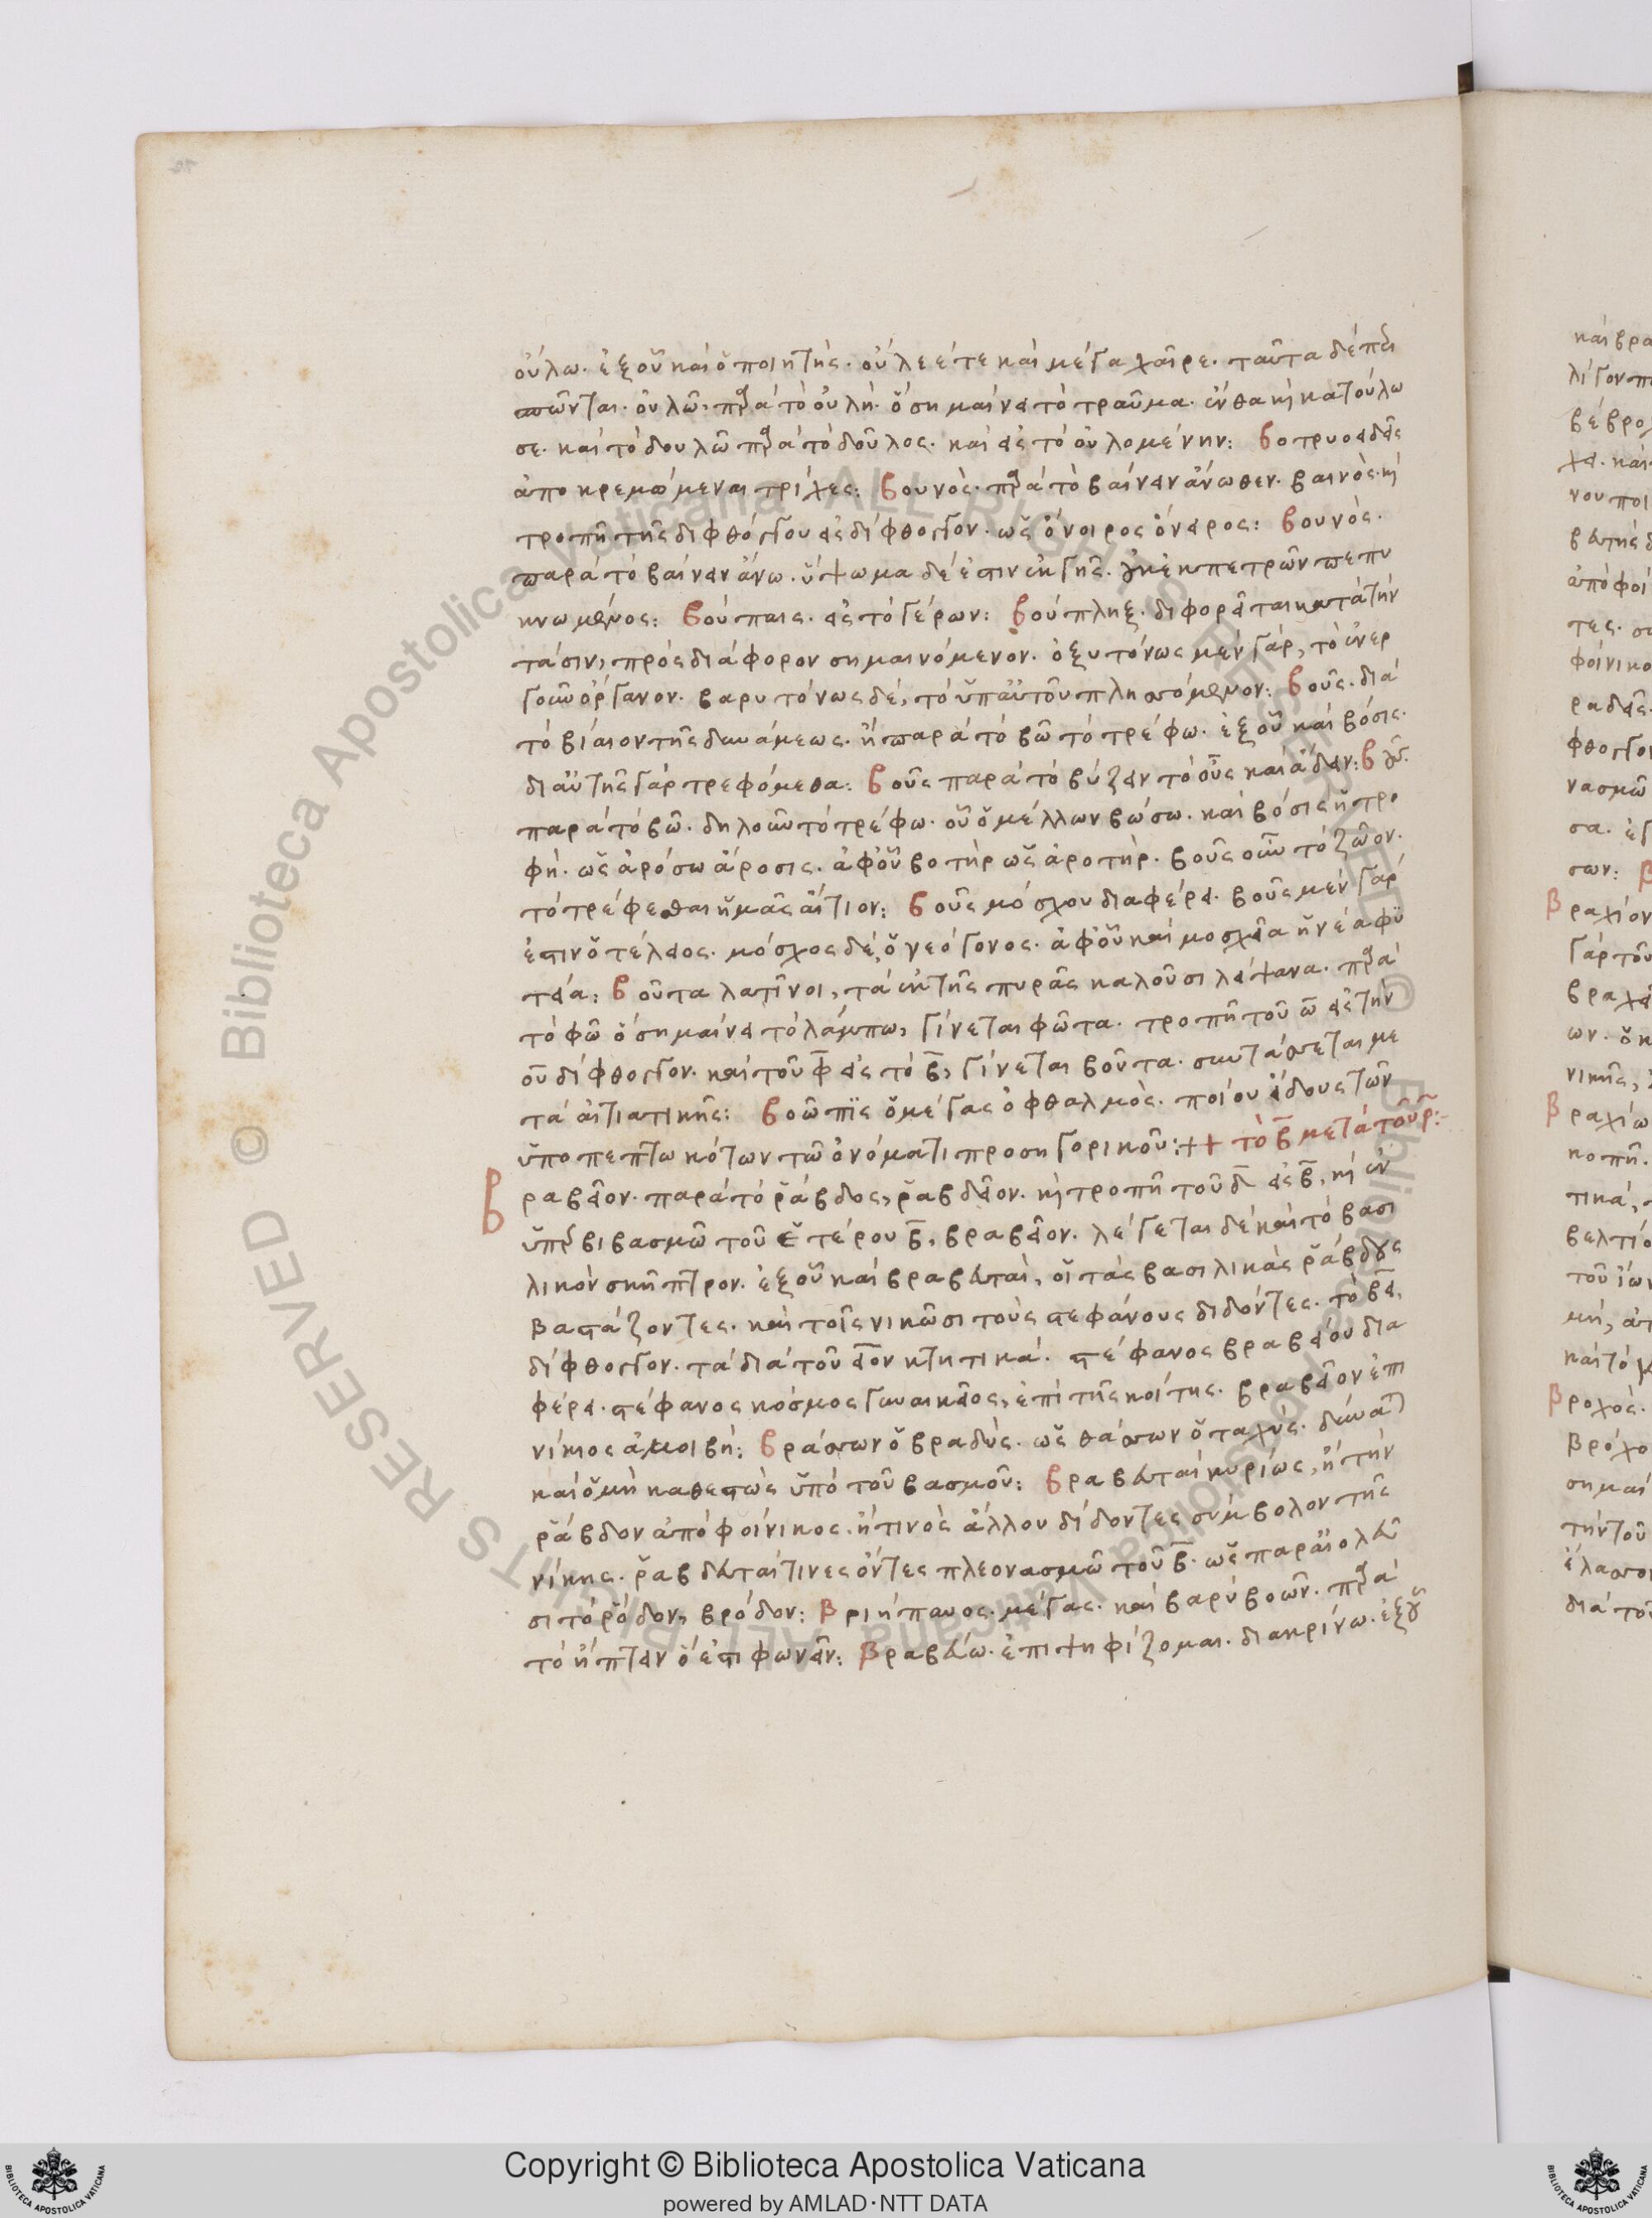 οὔλω. ἐξ οὗ καὶ ὁ ποιητής. οὖλέ τε καὶ μέγα χαῖρε. ταῦτα δὲ
οὐλῶ. παρὰ τὸ οὐλή. ὃ σημαίνει τὸ τραῦμα. ἔνθα καὶ κατούλω
σε. καὶ τὸ δουλῶ παρὰ τὸ δοῦλος. καὶ εἰς τὸ οὐλομένην: βοτρυοειδεῖς
ἀποκρεμώμεναι τρίχες: βουνὸς. παρὰ τὸ βαίνειν ἄνωθεν. βαινὸς. καὶ
τροπῇ τῆς διφθόγγου εἰς δίφθογγον. ὡς ὄνοιρος ὄνειρος: βουνὸς.
παρὰ τὸ βαίνειν ἄνω. ὕψωμα δέ ἐστιν ἐκ γῆς. ἢ ἐκ πετρῶν πεπυ
κνωμένος: βούπαις. εἰς τὸ γέρων: βούπληξ. διφορεῖται κατὰ τὴν
τάσιν, πρὸς διάφορον σημαινόμενον. ὀξυτόνως μὲν γάρ, τὸ ἐνερ
γοῦν ὄργανον. βαρυτόνως δέ, τὸ ὑπ' αὐτοῦ πλησσόμενον: βοῦς. διὰ
τὸ βίαιον τῆς δυνάμεως. ἢ παρὰ τὸ βῶ τὸ τρέφω. ἐξ οὗ καὶ βόσις.
δι' αὐτῆς γὰρ τρεφόμεθα: βοῦς παρὰ τὸ βύζειν τὸ οὖς καὶ ἄδειν: βοῦς.
παρὰ τὸ βῶ. δηλοῦν τὸ τρέφω. οὗ ὁ μέλλων βώσω. καὶ βόσις ἡ τρο
φή. ὡς ἀρόσω ἄροσις. ἀφ' οὗ βοτὴρ ὡς ἀροτήρ. βοῦς οὖν τὸ ζῶον.
τὸ τρέφεσθαι ἡμᾶς αἴτιον: βοῦς μόσχου διαφέρει. βοῦς μὲν γάρ
ἐστιν ὁ τέλειος. μόσχος δέ, ὁ νεόγονος. ἀφ' οὗ καὶ μοσχεία ἡ νέα φυ
τεία: βοῦτα λατῖνοι, τὰ ἐκ τῆς πυρᾶς καλοῦσι λείψανα. παρὰ
τὸ φῶ ὃ σημαίνει τὸ λάμπω, γίνεται φῶτα. τροπῇ τοῦ ω εἰς τὴν
ου δίφθογγον. καὶ τοῦ φ εἰς τὸ β, γίνεται βοῦτα. συντάσσεται με
τὰ αἰτιατικῆς: βοῶπϊς ὁ μέγας ὀφθαλμὸς. ποίου εἴδους τῶν
ὑποπεπτωκότων τῶ ὀνόματι προσηγορικοῦ:++ τὸ β μετὰ τοῦ ρ:
βραβεῖον. παρὰ τὸ ῥάβδος, ῥαβδεῖον. καὶ τροπῇ τοῦ δ εἰς β, καὶ ἐν
ὑπερβιβασμῶ τοῦ ἑτέρου β, βραβεῖον. λέγεται δὲ καὶ τὸ βασι
λικὸν σκῆπτρον. ἐξ οὗ καὶ βραβευταὶ, οἱ τὰς βασιλικὰς ῥάβδους
βαστάζοντες. καὶ τοῖς νικῶσι τοὺς στεφάνους διδόντες. τὸ βει,
δίφθογγον. τὰ διὰ τοῦ εῖον κτητικά. στέφανος βραβείου δια
φέρει. στέφανος κόσμος γυναικεῖος, ἐπὶ τῆς κοίτης. βραβεῖον ἐπι
νίκιος ἀμοιβή: βράσσων ὁ βραδύς. ὡς θάσσων ὁ ταχύς. δύναται
καὶ ὁ μὴ καθεστὼς ὑπὸ τοῦ βασμοῦ: βραβευταὶ κυρίως, ἢ τὴν
ῥάβδον ἀπὸ φοίνικος. ἤ τινος ἄλλου διδόντες σύμβολον τῆς
νίκης. ῥαβδευταί τινες ὄντες πλεονασμῶ τοῦ β. ὡς παρ' αἰολεῦ
σι τὸ ῥόδον, βρόδον: βριήπυος. μέγας. καὶ βαρὺ βοῶν. παρὰ
τὸ ἠπύειν ὅ ἐστι φωνεῖν: βραβεύω. ἐπιψηφίζομαι. διακρίνω. ἐξ οὗ
Copyright © Biblioteca Apostolica Vaticana
powered by AMLAD·NTT DATA